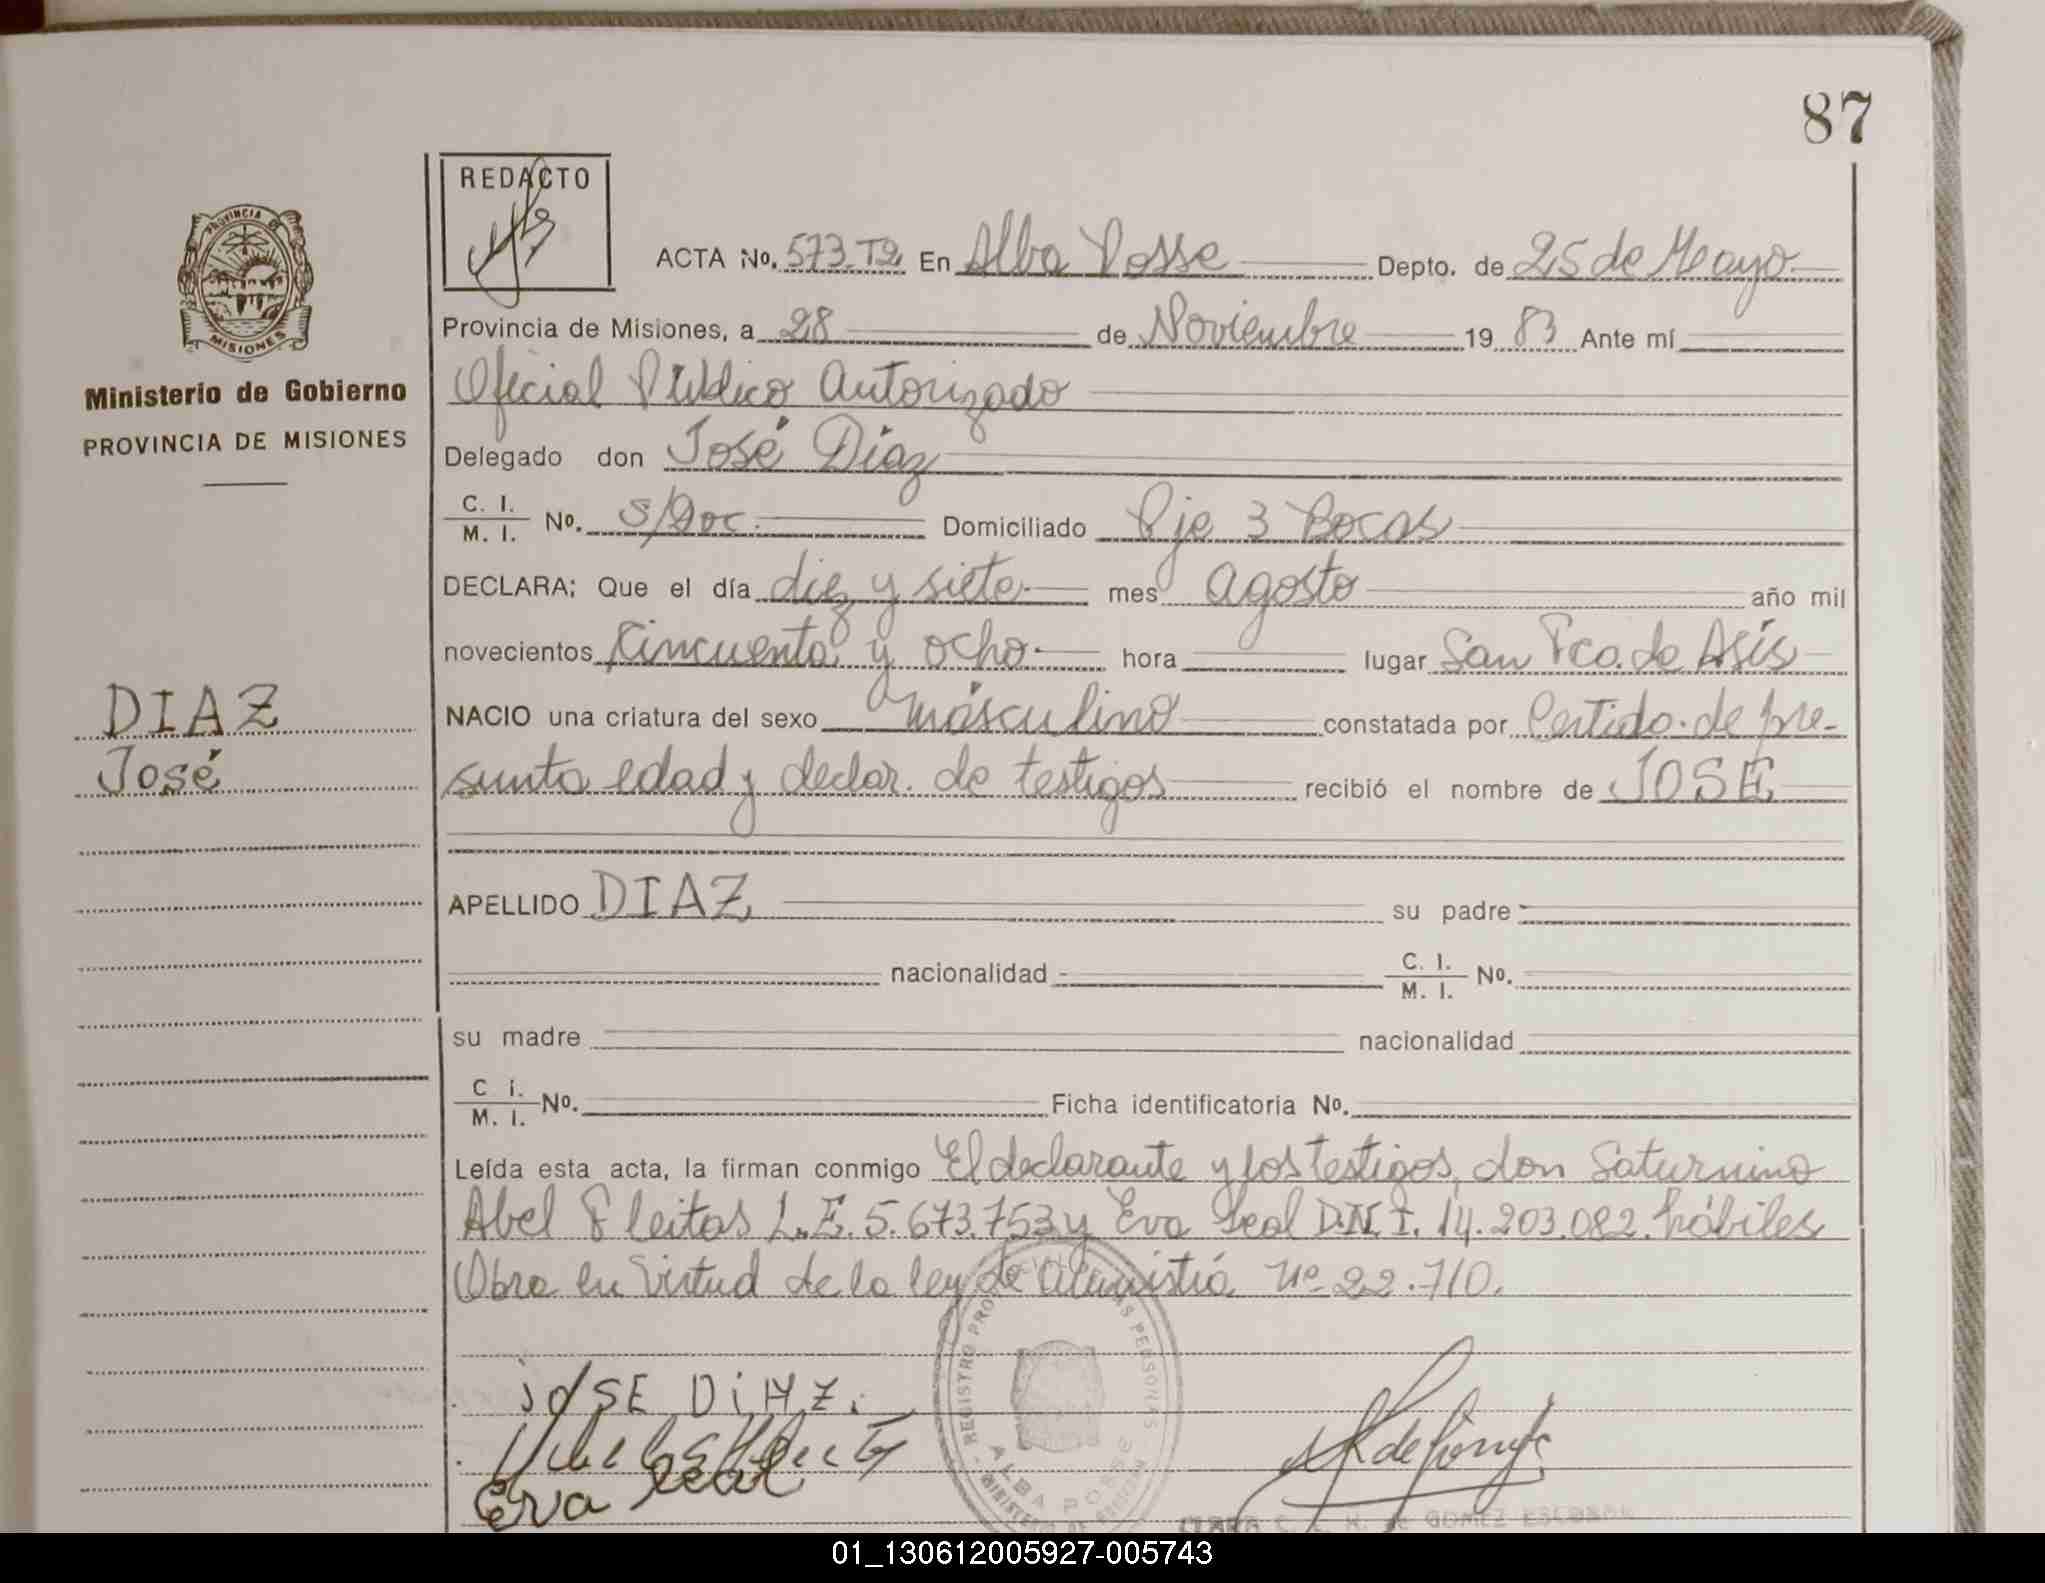 87
REDACTO
PROVINCIA DE
MISIONES
ACTA No. 573 T2 En Alba Posse Depto. de 25 de Mayo
Provincia de Misiones, a 28 de Noviembre 19 83 Ante mí
Ministerio de Gobierno
PROVINCIA DE MISIONES
Oficial Público Autorizado
Delegado don José Díaz
C. I.
M. I. No. s/Doc. Domiciliado Pje 3 Bocas
DECLARA; Que el día diez y siete mes agosto año mil
novecientos Cincuenta y ocho hora lugar San Fco. de Asís
DIAZ
José
NACIO una criatura del sexo másculino constatada por Certido. de pre-
sunta edad y declar. de testigos recibió el nombre de JOSE
APELLIDO DIAZ su padre
nacionalidad C. I.
M. I. No.
su madre nacionalidad
C i.
M. I. No. Ficha identificatoria No.
Leída esta acta, la firman conmigo El declarante y los testigos, don Saturnino
Abel Fleitas L.E. 5.673.753 y Eva Leal D.N.I. 14.203.082. hábiles
Obra en virtud de la ley de Amnistiá nº 22.710.
JOSE DiAZ.
Eva Leal
REGISTRO PERSONAS
ALBA POSSE
GOMEZ ESCOBAR
01_130612005927-005743